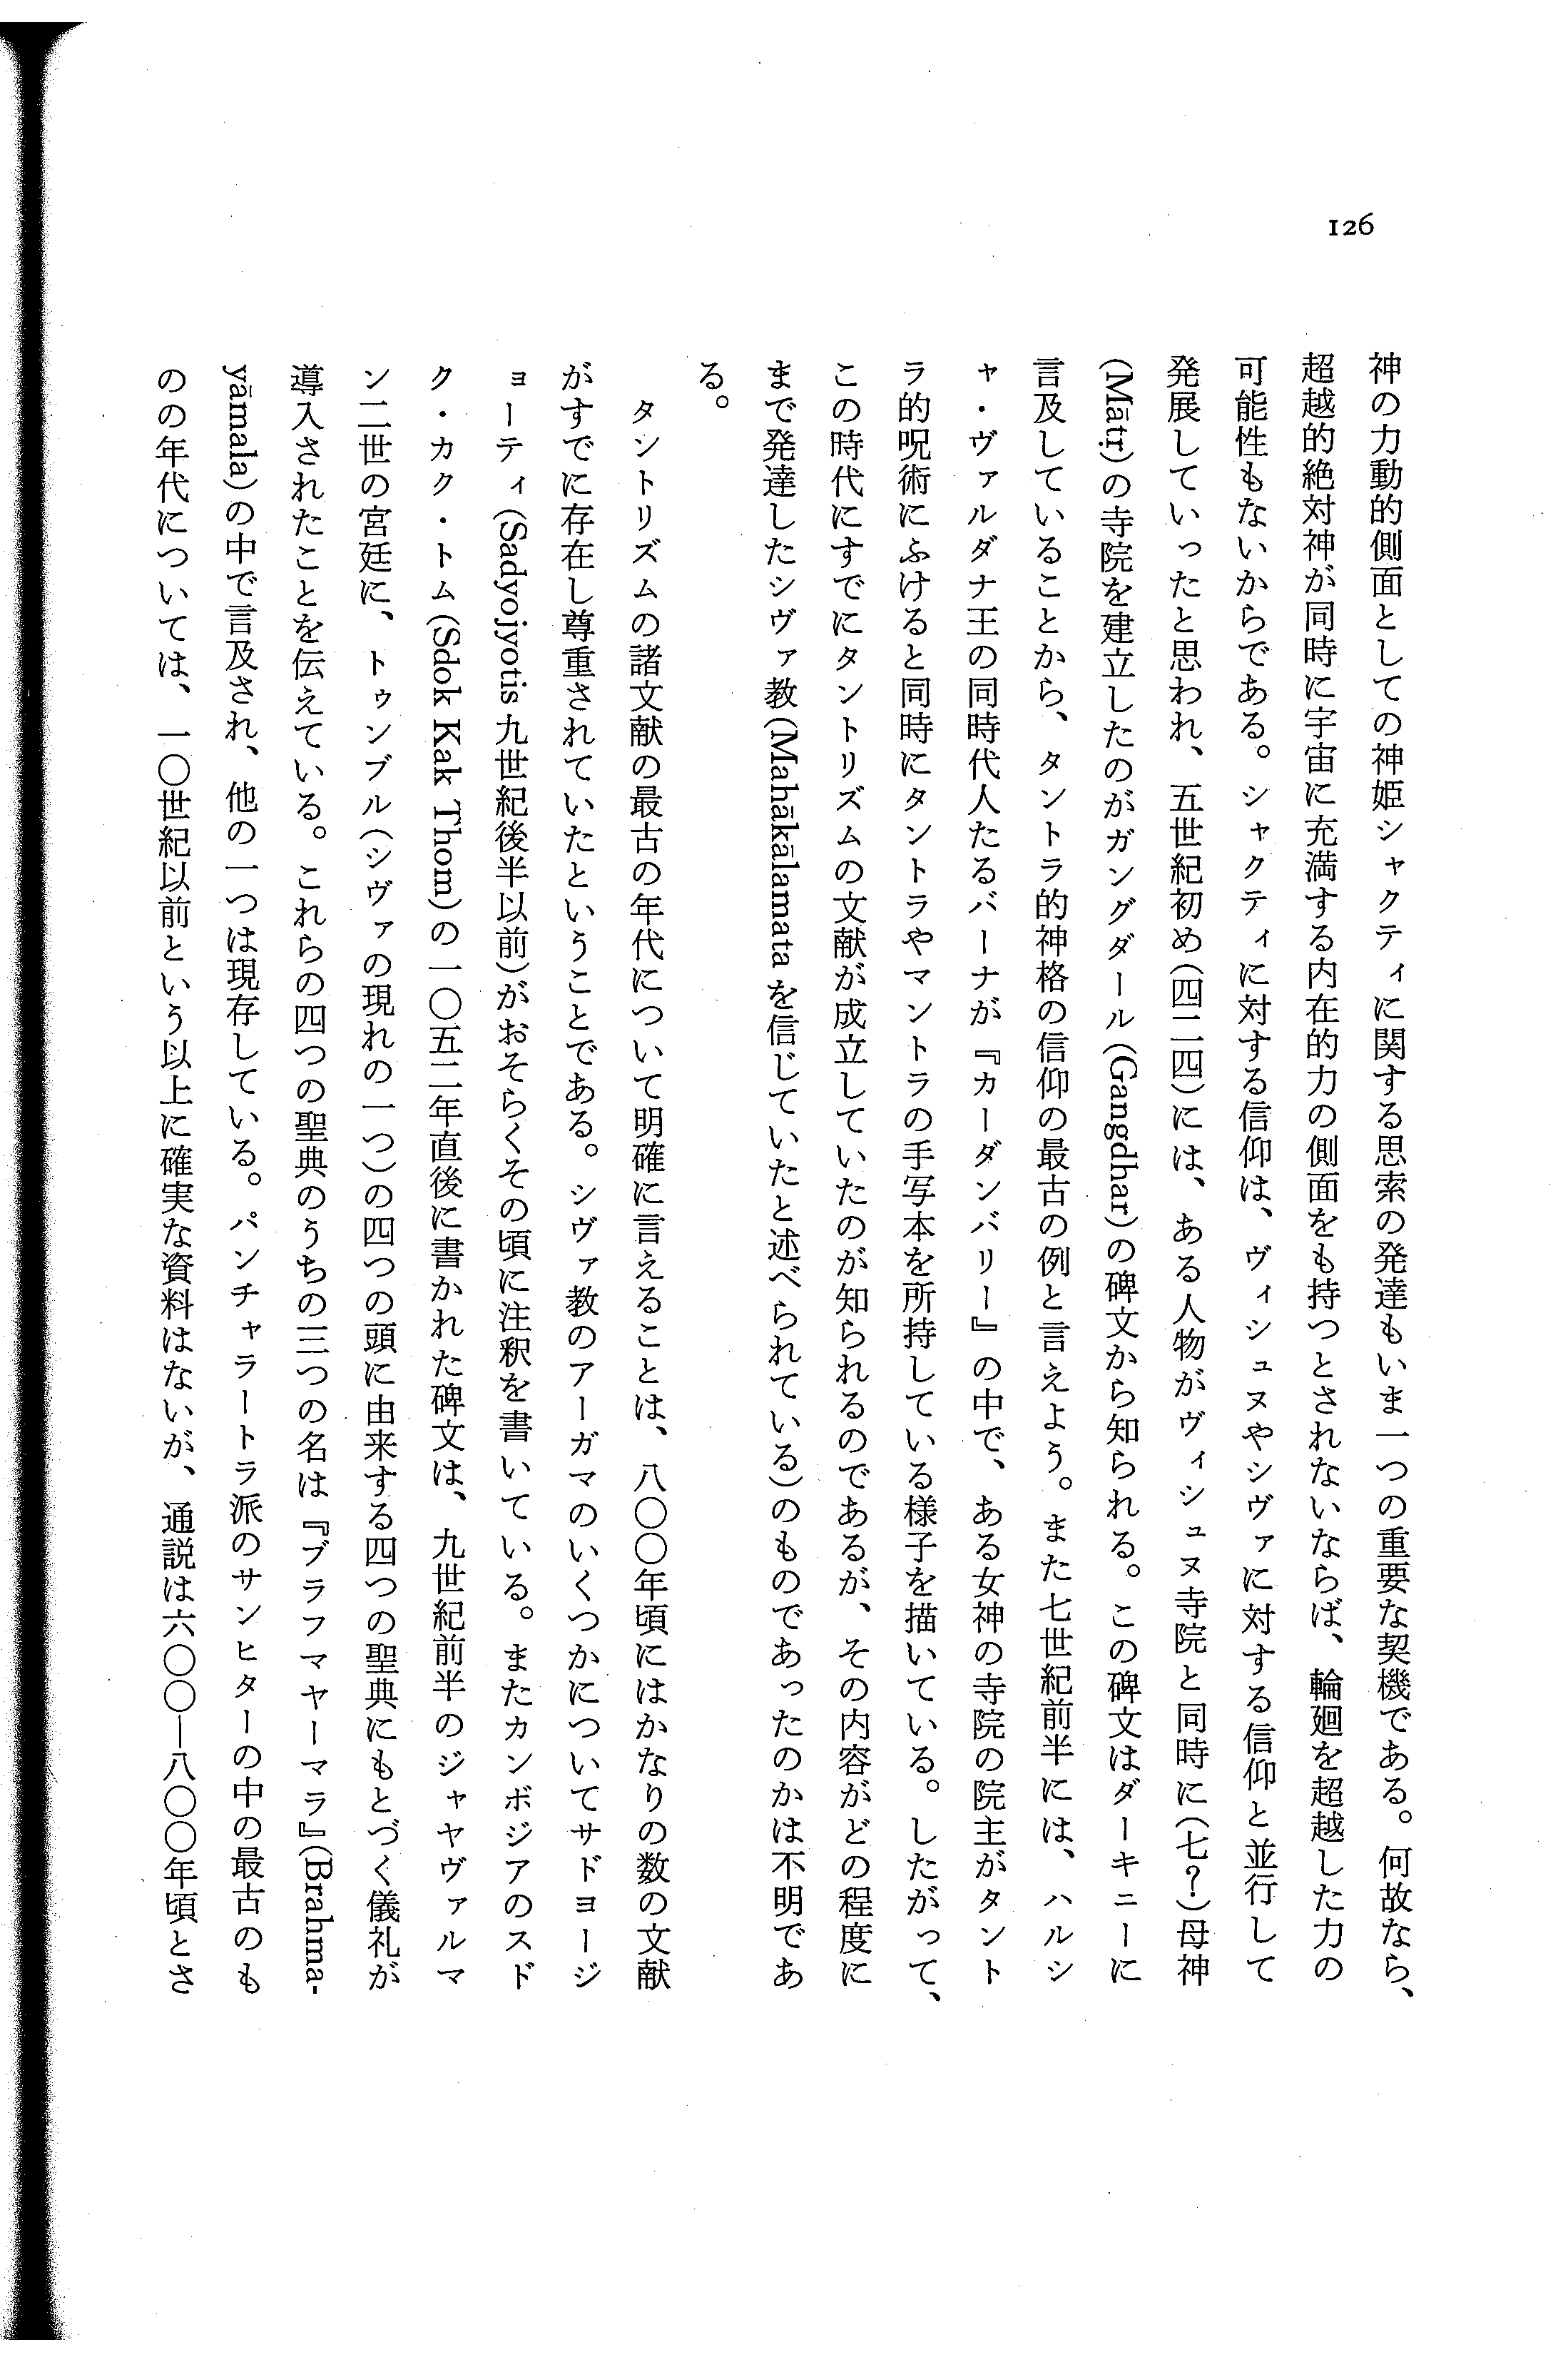 126
神の力動的側面としての神姫シャクティに関する思索の発達もいま一つの重要な契機である。何故なら、
超越的絶対神が同時に宇宙に充満する内在的力の側面をも持つとされないならば、輪廻を超越した力の
可能性もないからである。シャクティに対する信仰は、ヴィシュヌやシヴァに対する信仰と並行して
発展していったと思われ、五世紀初め(四二四)には、ある人物がヴィシュヌ寺院と同時に(七?)母神
(Mātṛ)の寺院を建立したのがガングダール(Gangdhar)の碑文から知られる。この碑文はダーキニーに
言及していることから、タントラ的神格の信仰の最古の例と言えよう。また七世紀前半には、ハルシ
ャ・ヴァルダナ王の同時代人たるバーナが『カーダンバリー』の中で、ある女神の寺院の院主がタント
ラ的呪術にふけると同時にタントラやマントラの手写本を所持している様子を描いている。したがって、
この時代にすでにタントリズムの文献が成立していたのが知られるのであるが、その内容がどの程度に
まで発達したシヴァ教(Mahākālamata を信じていたと述べられている)のものであったのかは不明であ
る。
タントリズムの諸文献の最古の年代について明確に言えることは、八〇〇年頃にはかなりの数の文献
がすでに存在し尊重されていたということである。シヴァ教のアーガマのいくつかについてサドヨージ
ョーティ(Sadyojyotis 九世紀後半以前)がおそらくその頃に注釈を書いている。またカンボジアのスド
ク・カク・トム(Sdok Kak Thom)の一〇五二年直後に書かれた碑文は、九世紀前半のジャヤヴァルマ
ン二世の宮廷に、トゥンブル(シヴァの現れの一つ)の四つの頭に由来する四つの聖典にもとづく儀礼が
導入されたことを伝えている。これらの四つの聖典のうちの三つの名は『ブラフマヤーマラ』(Brahma-
yāmala)の中で言及され、他の一つは現存している。パンチャラートラ派のサンヒターの中の最古のも
のの年代については、一〇世紀以前という以上に確実な資料はないが、通説は六〇〇―八〇〇年頃とさ